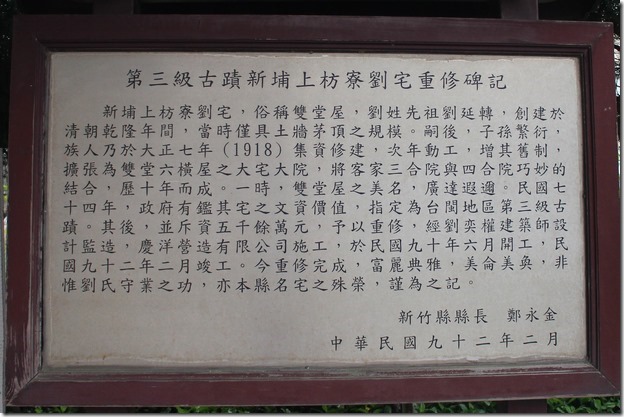 第三級古蹟新埔上枋寮劉宅重修碑記
新埔上枋寮劉宅，俗稱雙堂屋，劉姓先祖劉延轉，創建於
清朝乾隆年間，當時僅具土牆茅頂之規模。嗣後，子孫繁衍，
族人乃於大正七年(1918)集資修建，次年動工，增其舊制，
擴張為雙堂六橫屋之大宅大院，將客家三合院與四合院巧妙的
結合，歷十年而成。一時，雙堂屋之美名，廣達遐邇。民國七
十四年，政府有鑑其宅之文資價值，指定為台閩地區第三級古
蹟。其後，並斥資五千餘萬元，予以重修，經劉奕權建築師設
計監造，慶洋營造有限公司施工，於民國九十年六月開工，民
國九十二年二月竣工。今重修完成，富麗典雅，美侖美奐，非
惟劉氏守業之功，亦本縣名宅之殊榮，謹為之記。
新竹縣縣長　鄭永金
中華民國九十二年二月